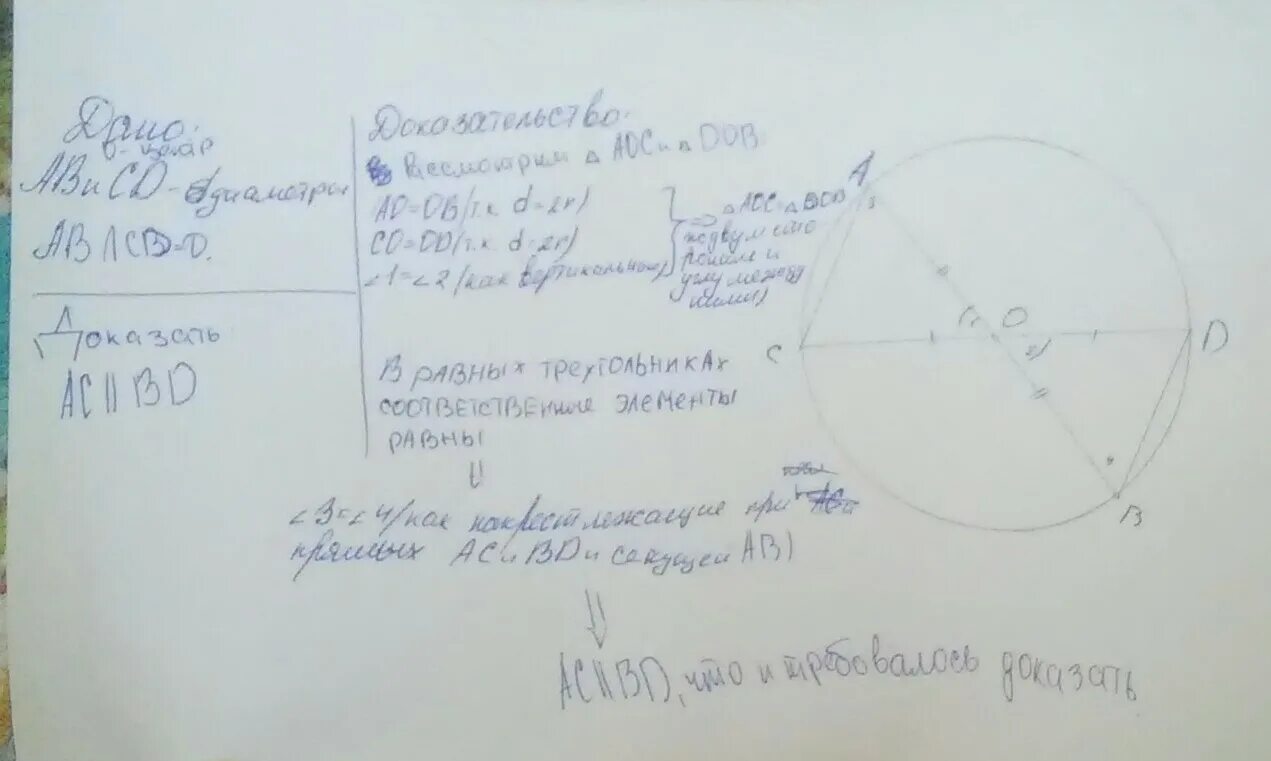 Дано:
О - центр
AB и CD - диаметры
AB ∩ CD = O.
Доказать
AC || BD
Доказательство:
Рассмотрим △ AOC и △ DOB
AO = OB (т.к. d = 2r)
CO = OD (т.к. d = 2r)
∠1 = ∠2 (как вертикальные)
=> △ AOC = △ BOD
по двум сто
ронам и
углу между
ними)
В РАВНЫХ ТРЕУГОЛЬНИКАХ
СООТВЕТСТВЕННЫЕ ЭЛЕМЕНТЫ
РАВНЫ
⇓
∠3 = ∠4 (как накрест лежащие при
прямых AC и BD и секущей AB)
⇓
AC || BD, что и требовалось доказать
A
3
1
O
2
C
D
B